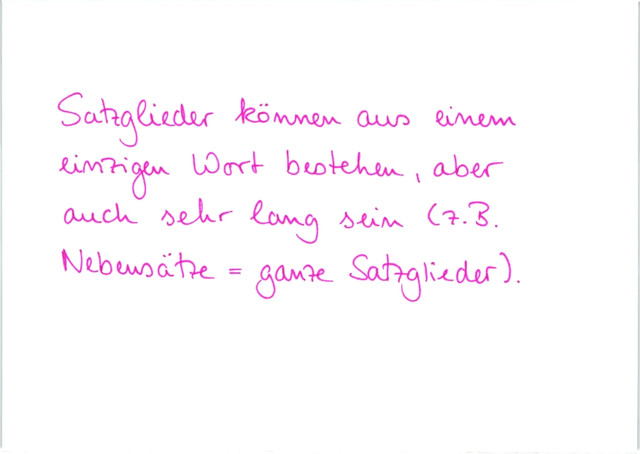 Satzglieder können aus einem
einzigen Wort bestehen, aber
auch sehr lang sein (z.B.
Nebensätze = ganze Satzglieder).